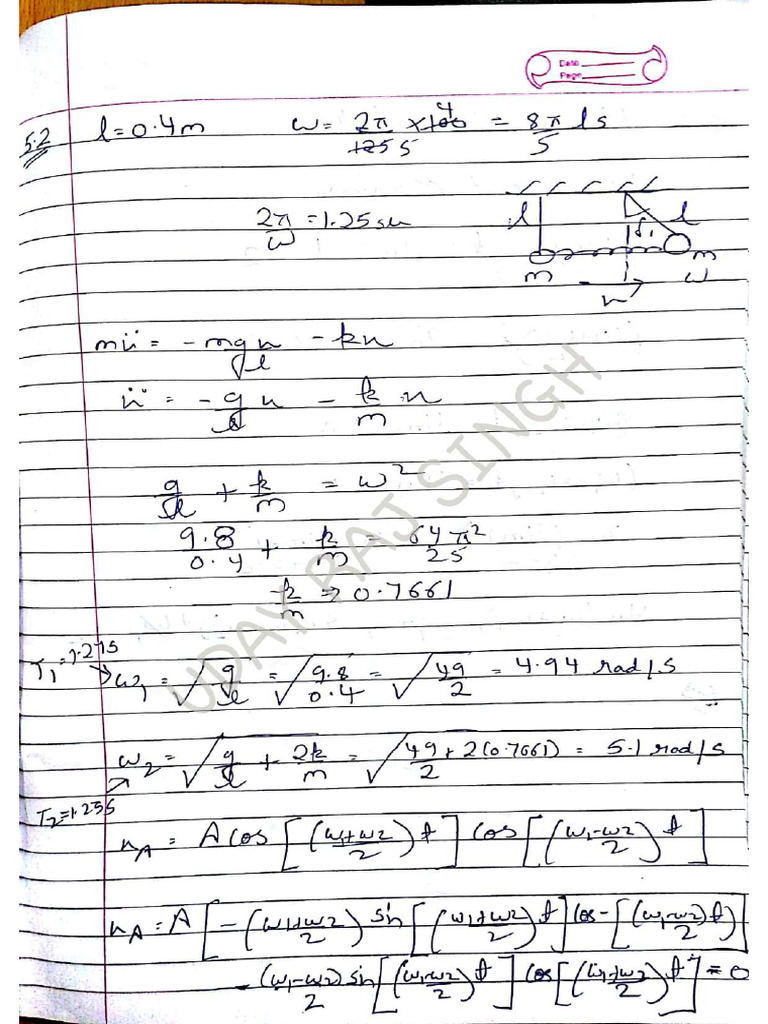 Date
Page
5.2 l=0.4m ω = 2π/1.25 5 × 100 4 = 8π/5 ls
2π/ω = 1.25 sec
l l
m m
ω
mẍ = -mgx/l - kx
ẍ = -g/l x - k/m x
g/l + k/m = ω²
9.8/0.4 + k/m = 64π²/25
k/m ⇒ 0.7661
T₁ = 1.27s
ω₁ = √(g/l) = √(9.8/0.4) = √(49/2) = 4.94 rad/s
ω₂ = √(g/l + 2k/m) = √(49/2 + 2(0.7661)) = 5.1 rad/s
T₂ = 1.23s
x_A = A cos [((ω₁+ω₂)/2) t] cos [((ω₁-ω₂)/2) t]
ẋ_A = A [-((ω₁+ω₂)/2) sin [((ω₁+ω₂)/2) t] cos [((ω₁-ω₂)/2) t]
- ((ω₁-ω₂)/2) sin [((ω₁-ω₂)/2) t] cos [((ω₁+ω₂)/2) t] = 0
UDAY RAJ SINGH